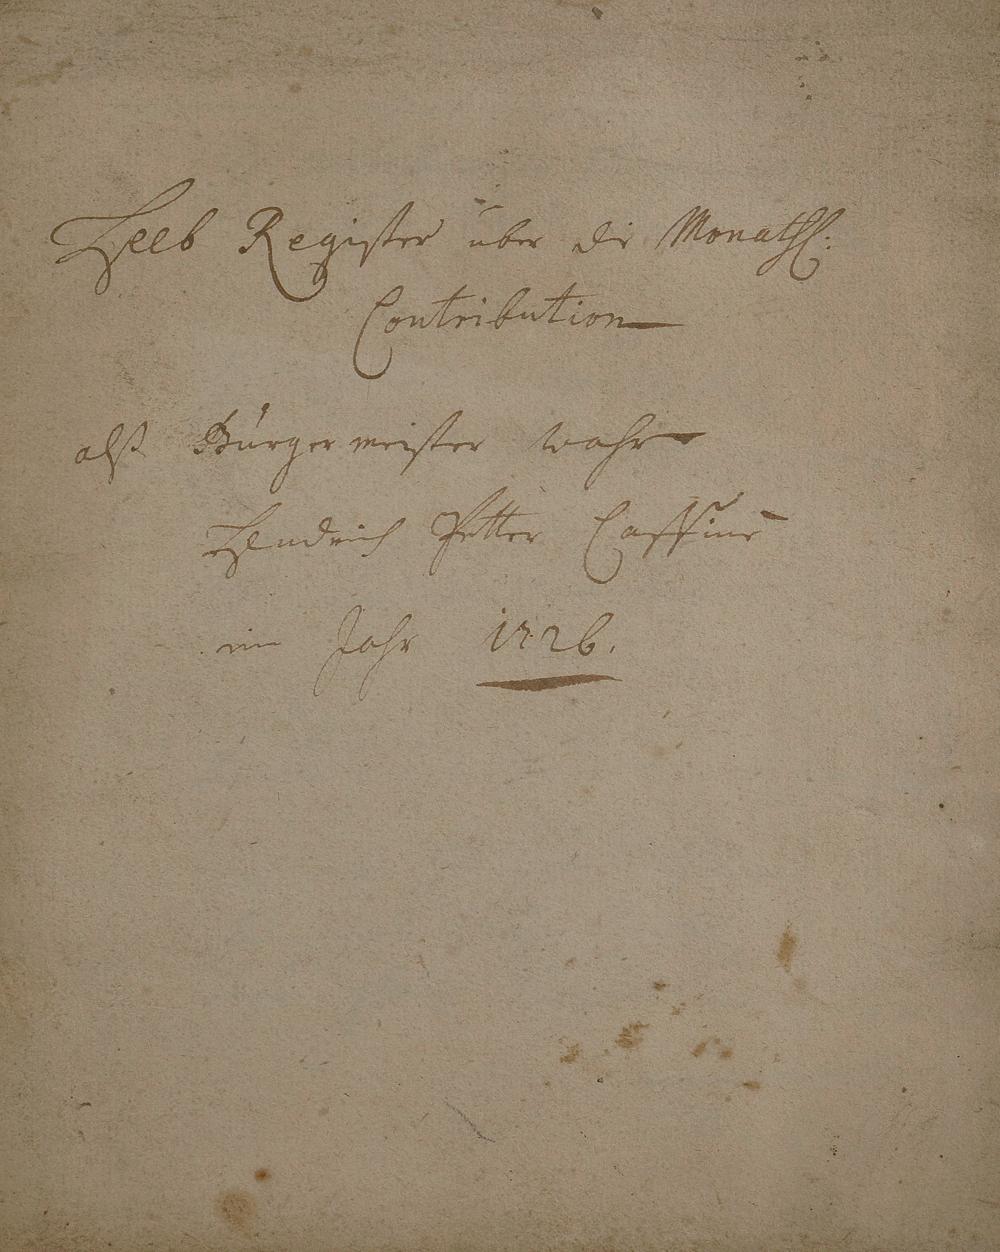 Heeb Register über die Monathl:
Contribution
alß Bürgermeister wahr
Hendrich Petter Cassius
im Jahr 1726.